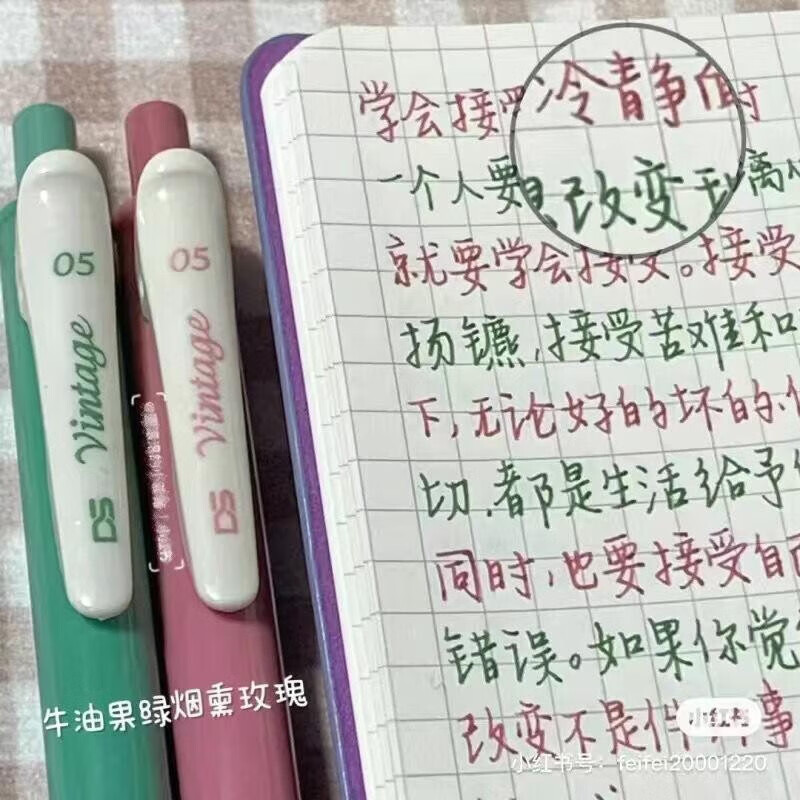 05
Vintage
DS
05
Vintage
DS
牛油果绿烟熏玫瑰
学会接受
冷静
时
一个人要
改变
离
就要学会接受。接受
扬镳,接受苦难和
下,无论好的坏的
切,都是生活给予
同时,也要接受自
错误。如果你觉
改变不是件 事
小红书
小红书号:feifei20001220